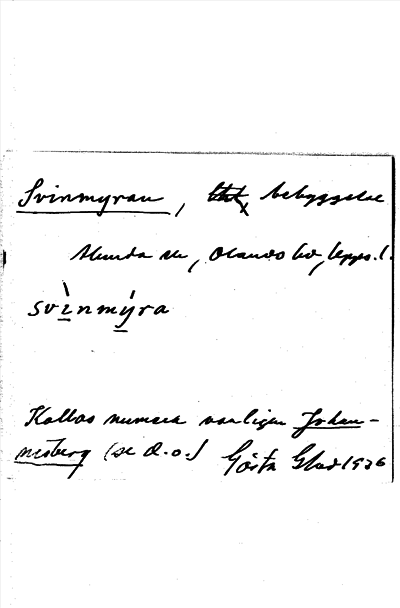 Svinmyran, bebyggelse
Alunda sn, Olands hd, Upps. l.
svìnmýra
Kallas numera vanligen Johan-
nesberg (se d.o.)
Gösta Glad 1936